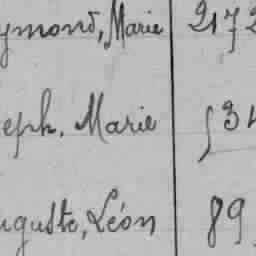 ymond, Marie 2172
eph, Marie 34
uguste, Léon 89